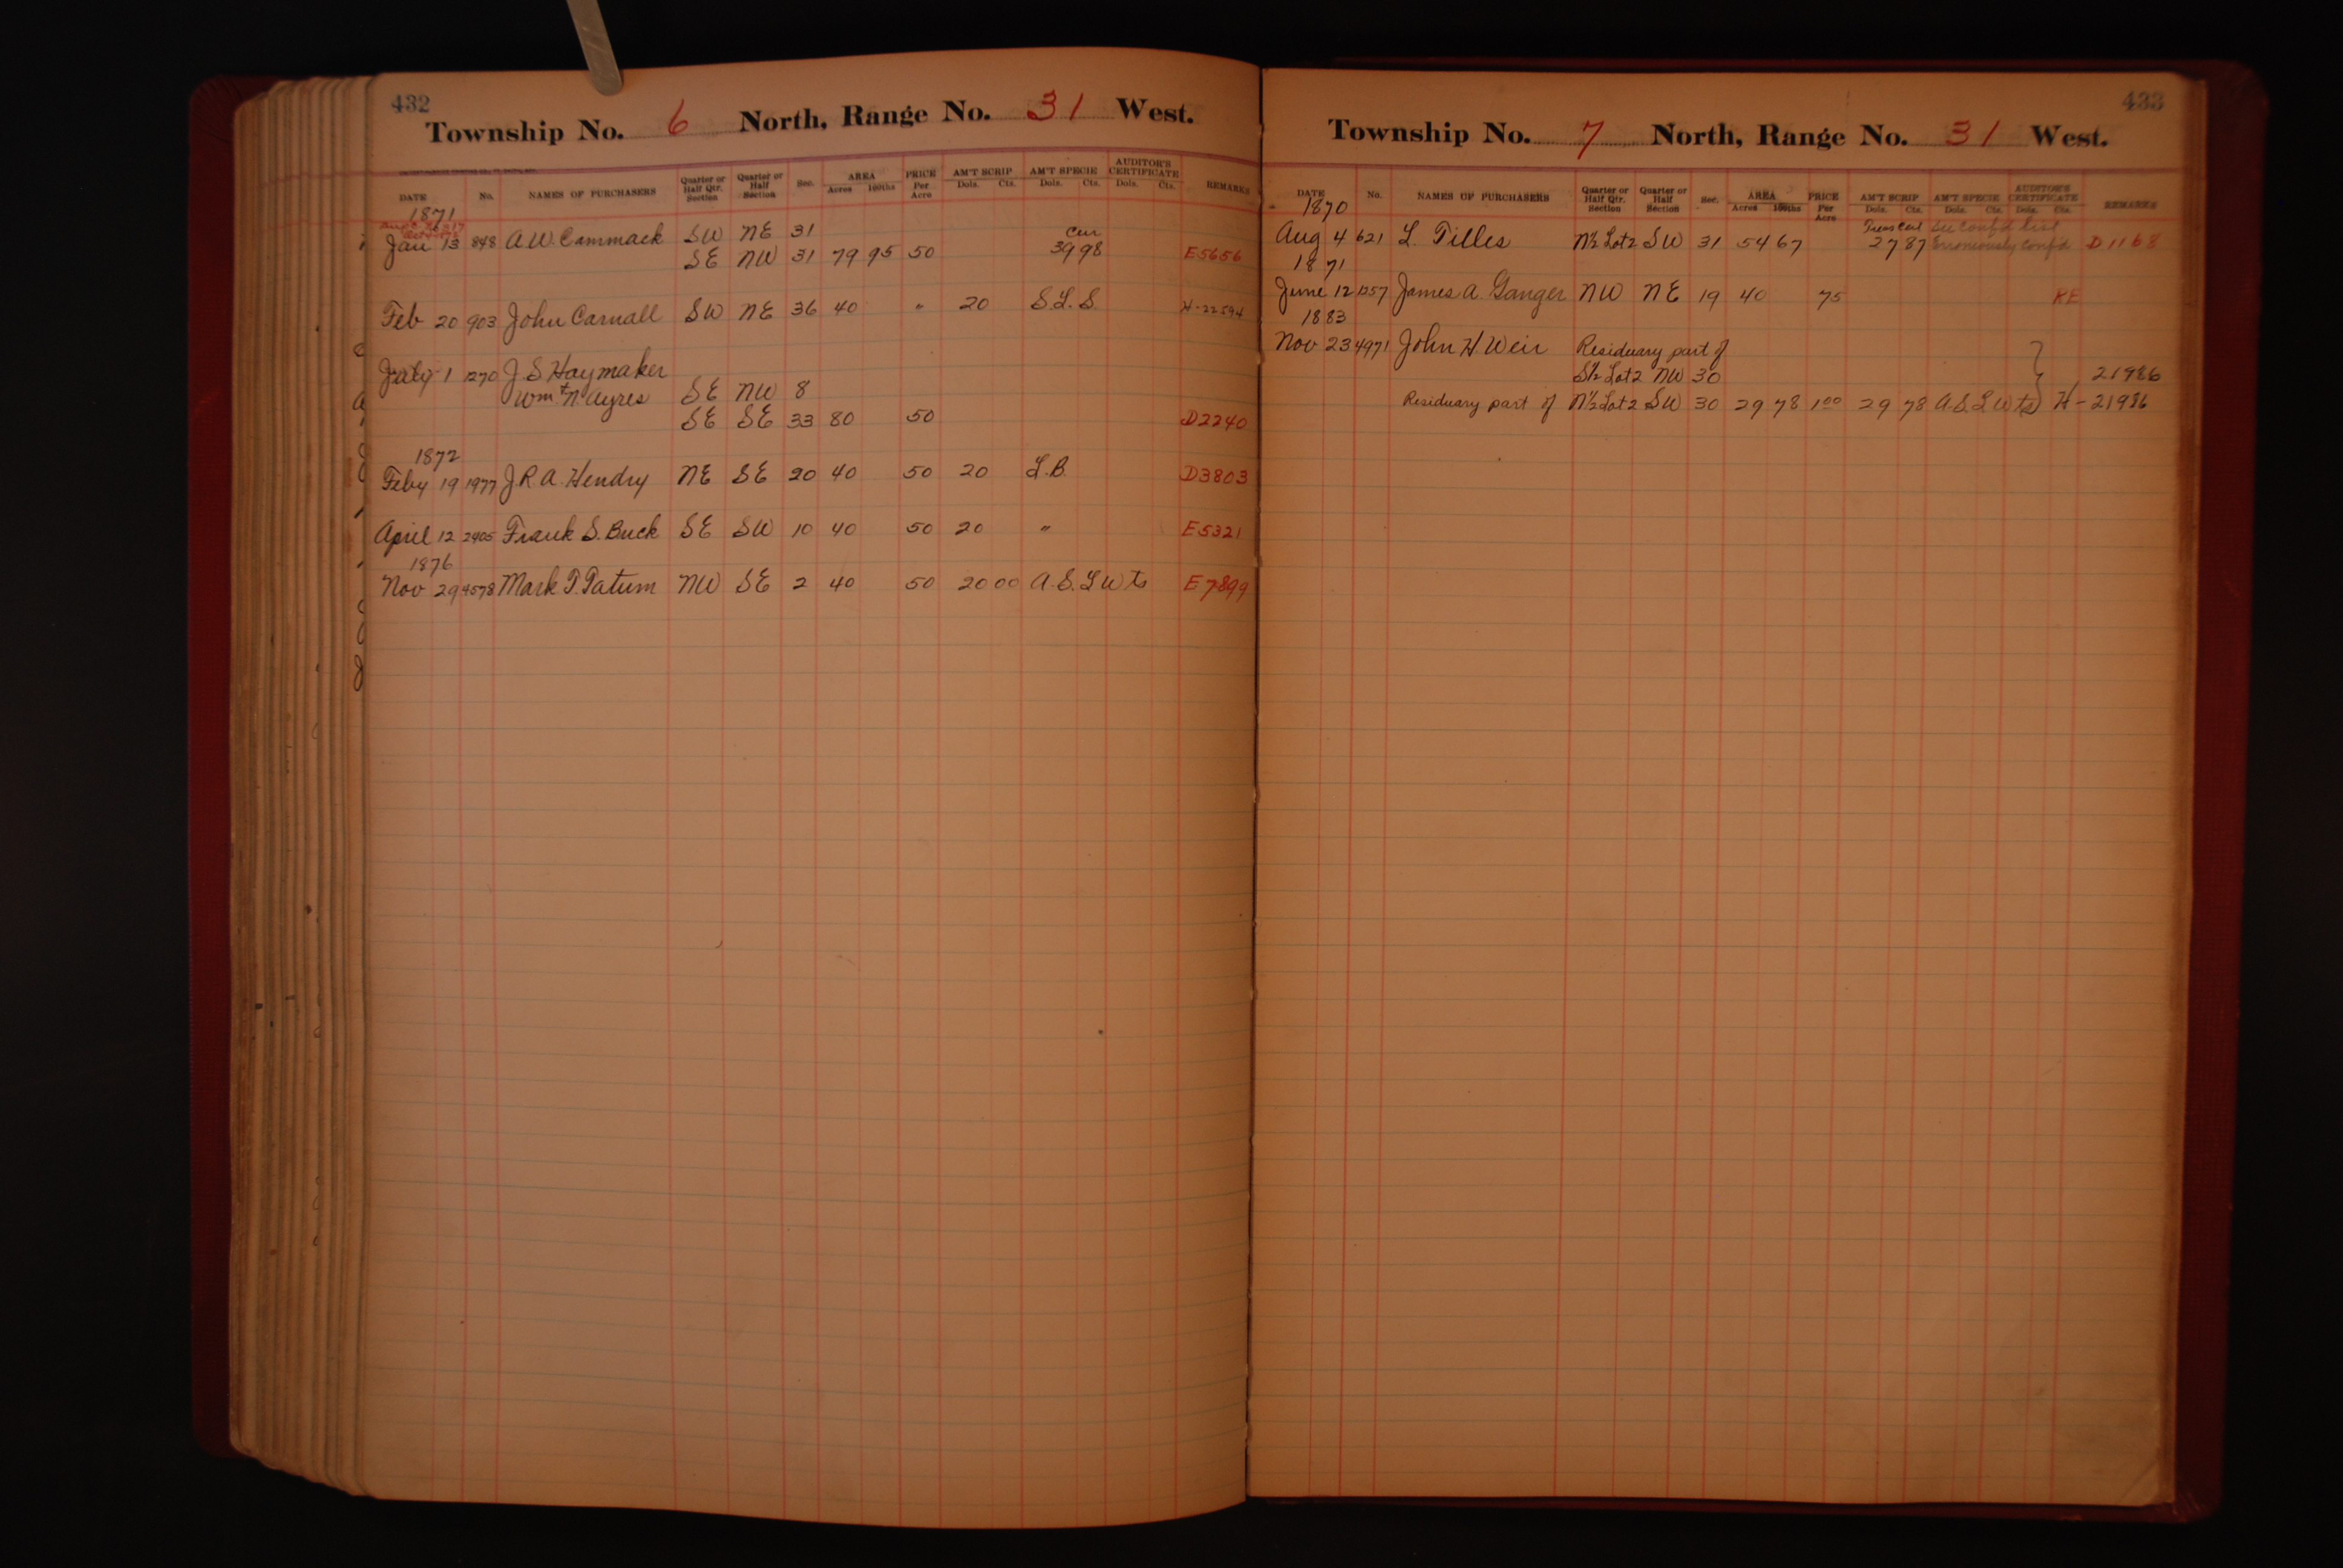 432
Township No. 6 North, Range No. 31 West.
DATE No. NAMES OF PURCHASERS Quarter or Half Qtr. Section Quarter or Half Section Sec. AREA Acres 100ths PRICE Per Acre AM'T SCRIP Dols. Cts. AM'T SPECIE Dols. Cts. AUDITOR'S CERTIFICATE Dols. Cts. REMARKS
1871
Jan 13 848 A. W. Cammack SW NE 31 Cur
SE NW 31 79 95 50 39 98 E5656
Feb 20 903 John Carnall SW NE 36 40 " 20 S.L.S. H-22594
July 1 1270 J. S. Haymaker
Wm + N. Ayres SE NW 8
SE SE 33 80 50 D2240
1872
Feby 19 1977 J. R. A. Hendry NE SE 20 40 50 20 L.B. D3803
April 12 2405 Frank S. Buck SE SW 10 40 50 20 " E5321
1876
Nov 29 4578 Mark T. Tatum NW SE 2 40 50 20 00 A.S.L Wts E7899
433
Township No. 7 North, Range No. 31 West.
DATE No. NAMES OF PURCHASERS Quarter or Half Qtr. Section Quarter or Half Section Sec. AREA Acres 100ths PRICE Per Acre AM'T SCRIP Dols. Cts. AM'T SPECIE Dols. Cts. AUDITOR'S CERTIFICATE Dols. Cts. REMARKS
1870
Treas Cert See Conf'd list
Aug 4 621 L. Tilles N½ Lot 2 SW 31 54 67 27 87 Erroneously Conf'd D1168
1871
June 12 1257 James A. Ganger NW NE 19 40 75 RE
1883
Nov 23 4971 John H. Weir Residuary part of
S½ Lot 2 NW 30 21986
Residuary part of N½ Lot 2 SW 30 29 78 1 00 29 78 A.S.L Wts H-21986